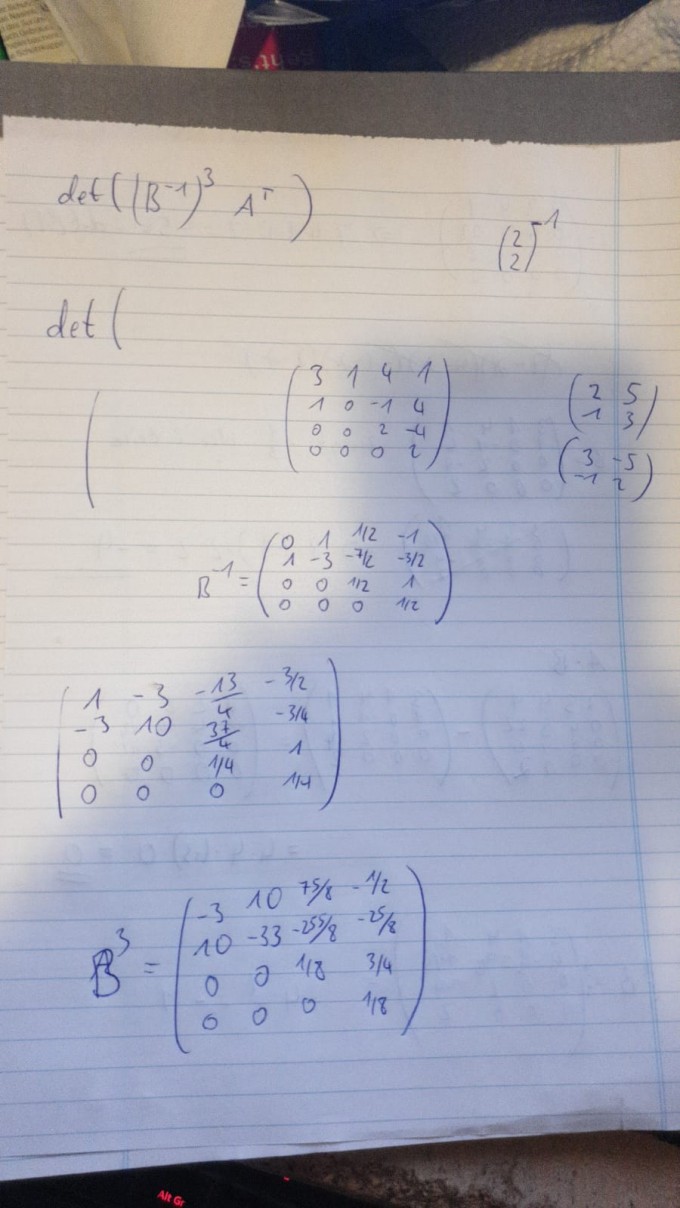 det((B⁻¹)³ Aᵀ)
(2 2)⁻¹
det(
3 1 4 1
1 0 -1 4
0 0 2 -4
0 0 0 2
2 5
1 3
3 -5
-1 2
B⁻¹ =
0 1 1/2 -1
1 -3 -7/2 -3/2
0 0 1/2 1
0 0 0 1/2
1 -3 -13/4 -3/2
-3 10 37/4 -3/4
0 0 1/4 1
0 0 0 1/4
B³ =
-3 10 75/8 -1/2
10 -33 -255/8 -25/8
0 0 1/8 3/4
0 0 0 1/8
Alt Gr